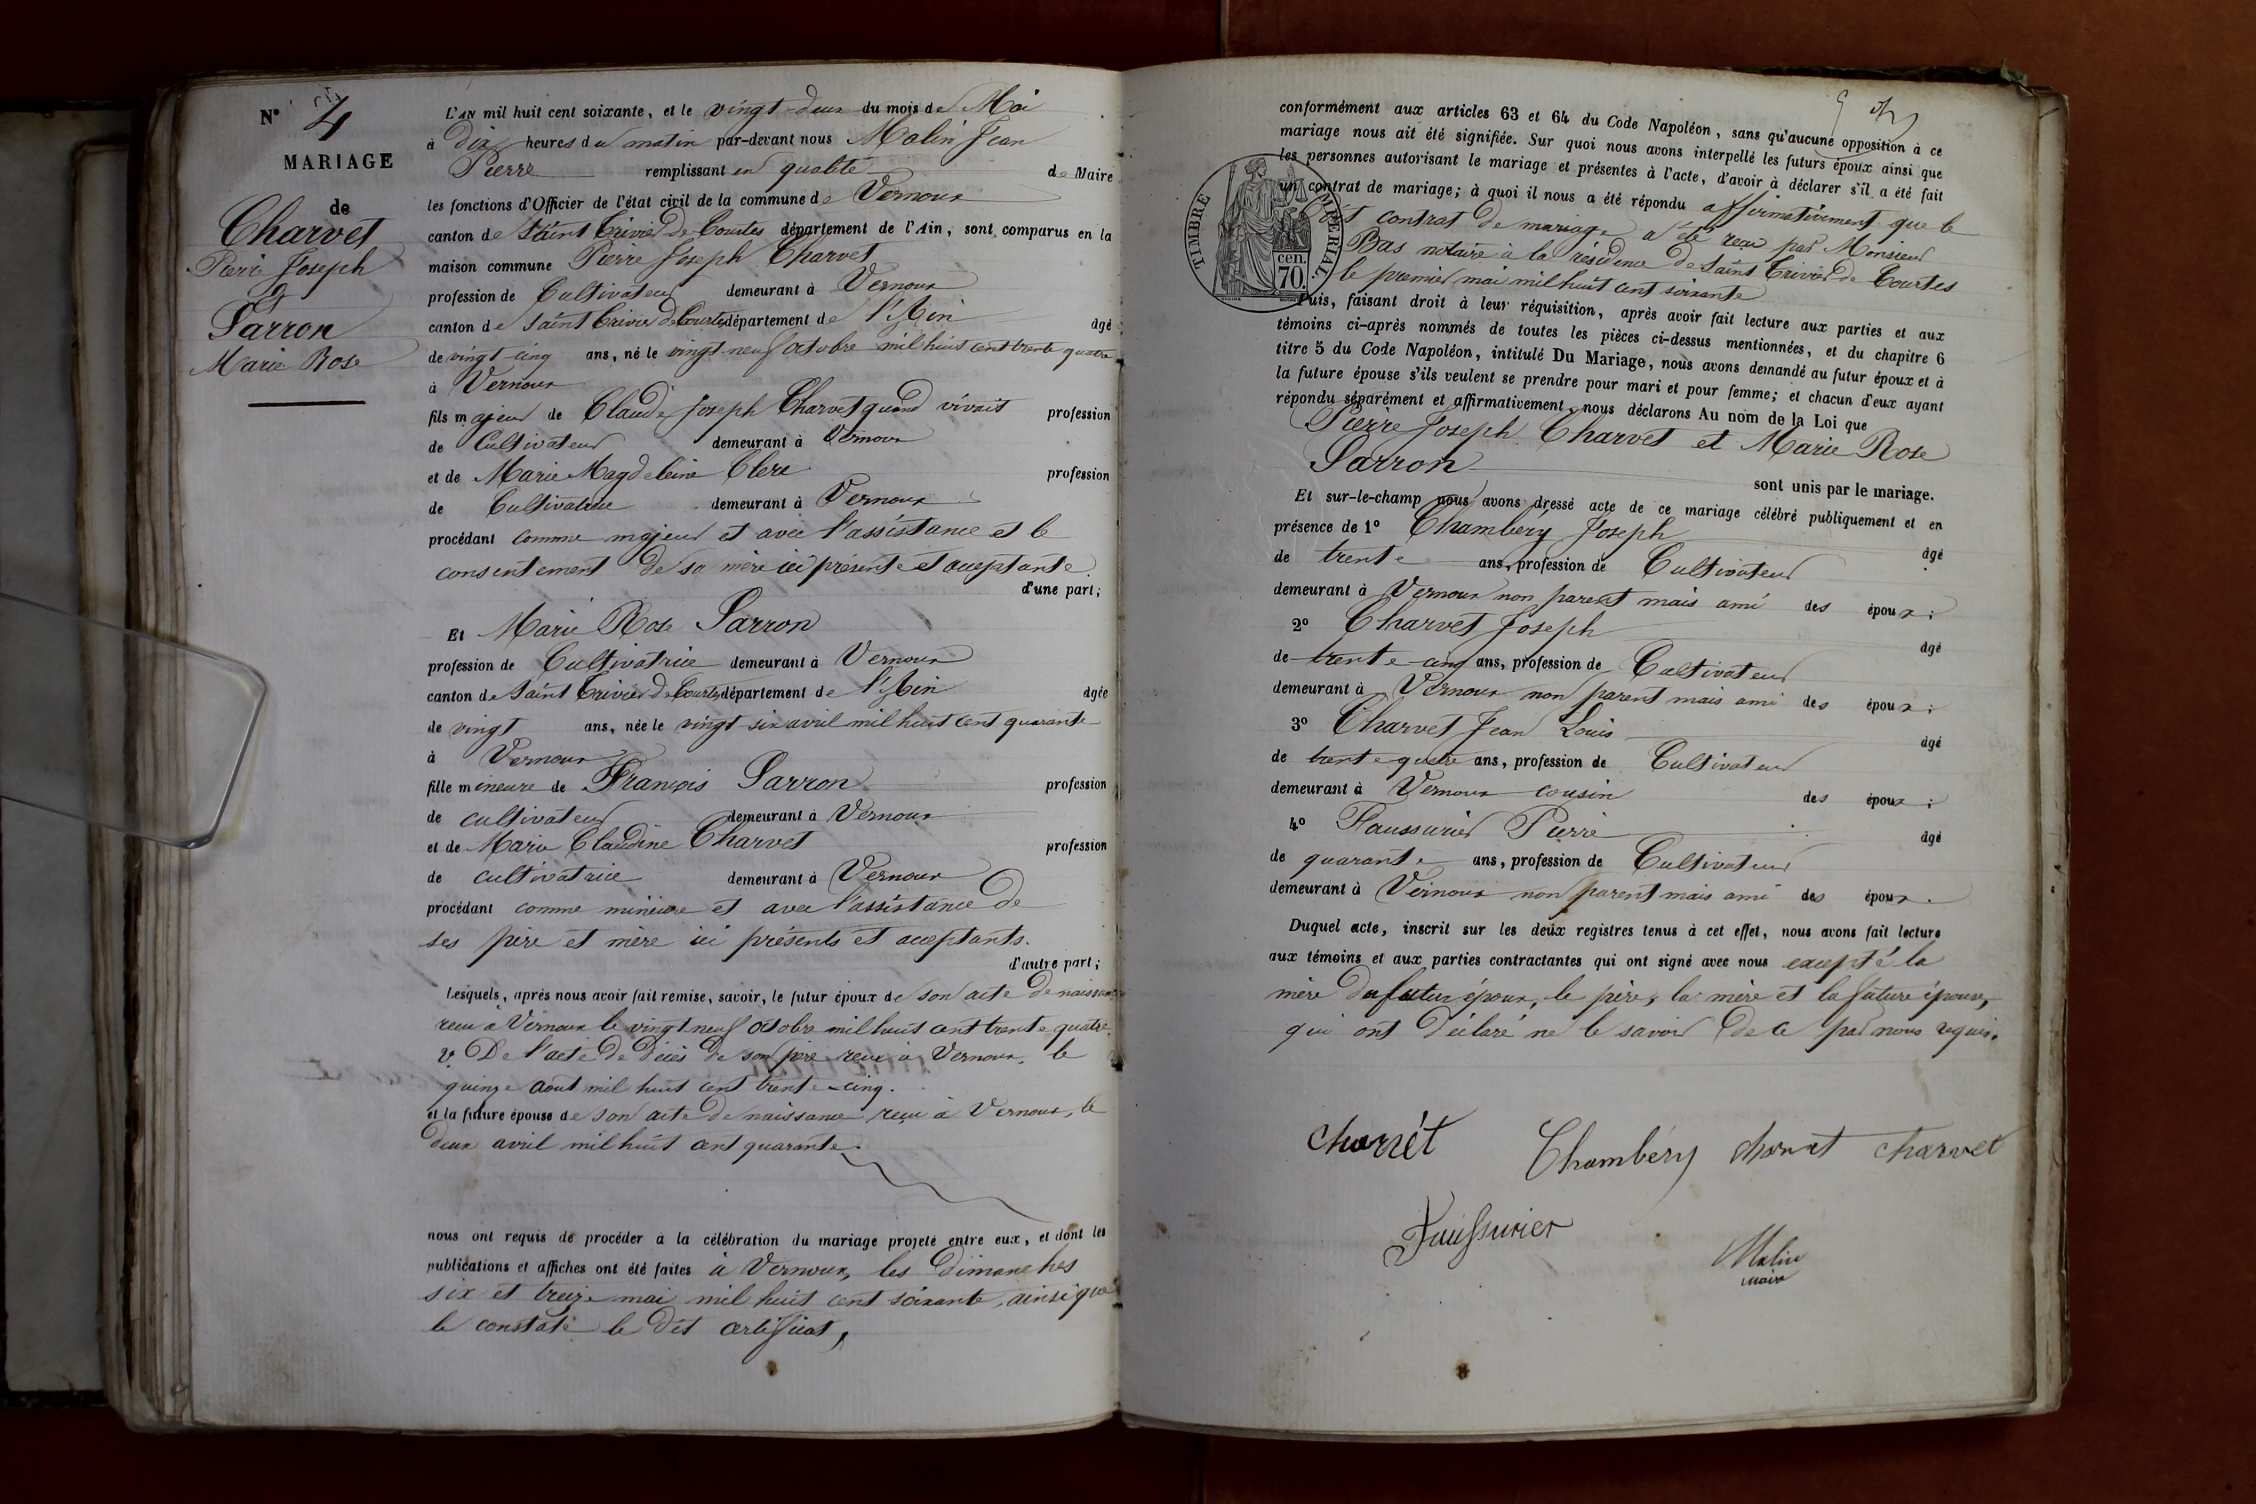 N° 4
MARIAGE
de
Charvet
Pierre Joseph
et
Sarron
Marie Rose
L'AN mil huit cent soixante, et le vingt-deux du mois de Mai
à Dix heures du matin par-devant nous Malin Jean
Pierre remplissant en qualité de Maire
les fonctions d'Officier de l'état civil de la commune de Vernoux
canton de Saint Trivier De Courtes département de l'Ain, sont comparus en la
maison commune Pierre Joseph Charvet
profession de Cultivateur demeurant à Vernoux
canton de Saint Trivier De Courtes département de l'Ain âgé
de vingt cinq ans, né le vingt-neuf Octobre mil huit cent trente quatre
à Vernoux
fils majeur de Claude Joseph Charvet quand vivait profession
de Cultivateur demeurant à Vernoux
et de Marie Magdeleine Clerc profession
de Cultivatrice demeurant à Vernoux
procédant comme majeur et avec l'assistance et le
consentement de sa mère ici présente et acceptante
d'une part;
Et Marie Rose Sarron
profession de Cultivatrice demeurant à Vernoux
canton de Saint Trivier De Courtes département de l'Ain âgée
de vingt ans, née le vingt six avril mil huit cent quarante
à Vernoux
fille mineure de François Sarron profession
de cultivateur demeurant à Vernoux
et de Marie Claudine Charvet profession
de cultivatrice demeurant à Vernoux
procédant comme mineure et avec l'assistance de
ses père et mère ici présents et acceptants.
d'autre part;
Lesquels, après nous avoir fait remise, savoir, le futur époux de son acte de naissance
reçu à Vernoux le vingt neuf Octobre mil huit cent trente quatre.
2° De l'acte de Décès de son père reçu à Vernoux, le
quinze août mil huit cent trente-cinq.
et la future épouse de son acte de naissance reçu à Vernoux, le
deux avril mil huit cent quarante.
nous ont requis de procéder à la célébration du mariage projeté entre eux, et dont les
publications et affiches ont été faites à Vernoux, les Dimanches
six et treize mai mil huit cent soixante, ainsi que
le constate le dit certificat,
conformément aux articles 63 et 64 du Code Napoléon, sans qu'aucune opposition à ce
mariage nous ait été signifiée. Sur quoi nous avons interpellé les futurs époux ainsi que
les personnes autorisant le mariage et présentes à l'acte, d'avoir à déclarer s'il a été fait
un contrat de mariage; à quoi il nous a été répondu affirmativement que le
dit contrat de mariage a été reçu par Monsieur
Bas notaire à la résidence de Saint Trivier De Courtes
le premier mai mil huit cent soixante
TIMBRE IMPÉRIAL.
cen.
70.
Puis, faisant droit à leur réquisition, après avoir fait lecture aux parties et aux
témoins ci-après nommés de toutes les pièces ci-dessus mentionnées, et du chapitre 6
titre 5 du Code Napoléon, intitulé Du Mariage, nous avons demandé au futur époux et à
la future épouse s'ils veulent se prendre pour mari et pour femme; et chacun d'eux ayant
répondu séparément et affirmativement, nous déclarons Au nom de la Loi que
Pierre Joseph Charvet et Marie Rose
Sarron
sont unis par le mariage.
Et sur-le-champ nous avons dressé acte de ce mariage célébré publiquement et en
présence de 1° Chambéry Joseph âgé
de trente ans, profession de Cultivateur
demeurant à Vernoux non parent mais ami des époux;
2° Charvet Joseph âgé
de trente-cinq ans, profession de Cultivateur
demeurant à Vernoux non parent mais ami des époux;
3° Charvet Jean Louis âgé
de trente quatre ans, profession de Cultivateur
demeurant à Vernoux cousin des époux;
4° Faussurier Pierre âgé
de quarante ans, profession de Cultivateur
demeurant à Vernoux non parent mais ami des époux.
Duquel acte, inscrit sur les deux registres tenus à cet effet, nous avons fait lecture
aux témoins et aux parties contractantes qui ont signé avec nous excepté la
mère du futur époux, le père, la mère et la future épouse,
qui ont déclaré ne le savoir de ce par nous requis.
Charvét
Chambéry Charvet Charvet
Faussurier
Malin
maire